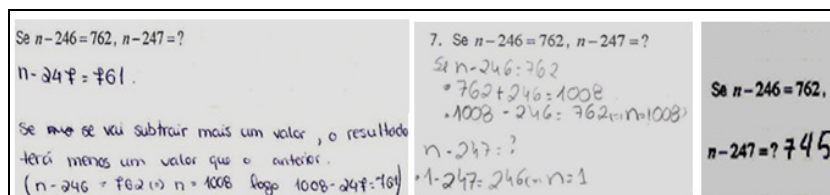 Se n−246=762, n−247=?
n-247 = 761.
Se se vai subtrair mais um valor, o resultado
terá menos um valor que o anterior.
(n-246 = 762 (=) n = 1008 logo 1008-247=761)
7. Se n−246=762, n−247=?
Se n-246=762
• 762+246=1008
• 1008 - 246= 762 (=) n=1008)
n-247=?
• 1-247= 246 (=) n=1
Se n−246=762,
n−247=? 745